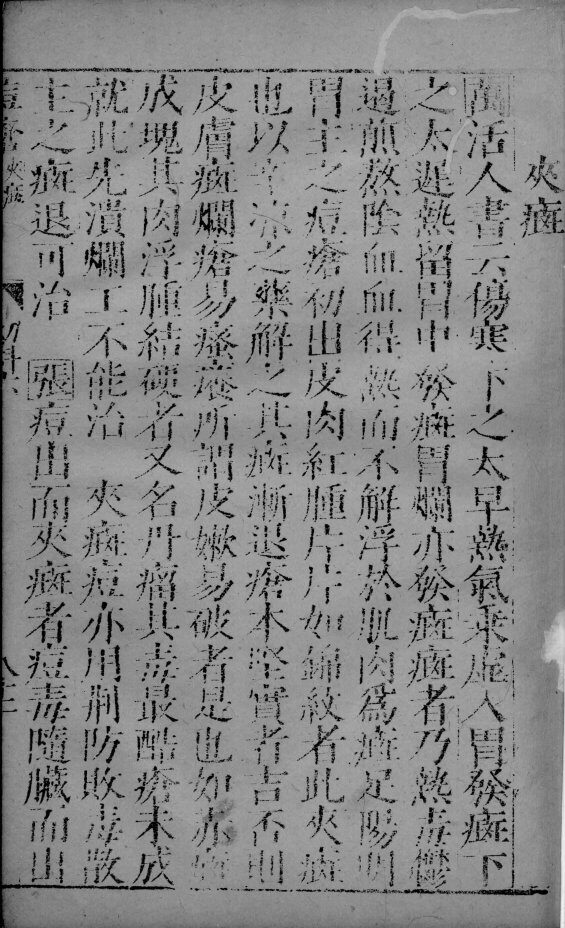 夾㾦
萬活人書云傷寒下之太早熱氣乗虚入胃發㾦下
之太遲熱留胃中發㾦胃爛亦發㾦㾦者乃熱毒鬱
過煎熬隂血血得熱而不解浮於肌肉爲㾦足陽明
胃主之痘瘡初出皮肉紅腫片片如錦紋者此夾㾦
也以辛凉之藥解之其㾦漸退瘡本堅實者吉否則
皮膚㾦爛瘡易瘙癢所謂皮嫰易破者是也如赤㾦
成塊其肉浮腫結硬者又名丹瘤其毒最酷瘡未成
就此先潰爛工不能治　夾㾦痘亦用荆防敗毒散
主之㾦退可治　張痘出而夾㾦者痘毒隨臟而出
痘疹夾㾦　幼科六　八十一